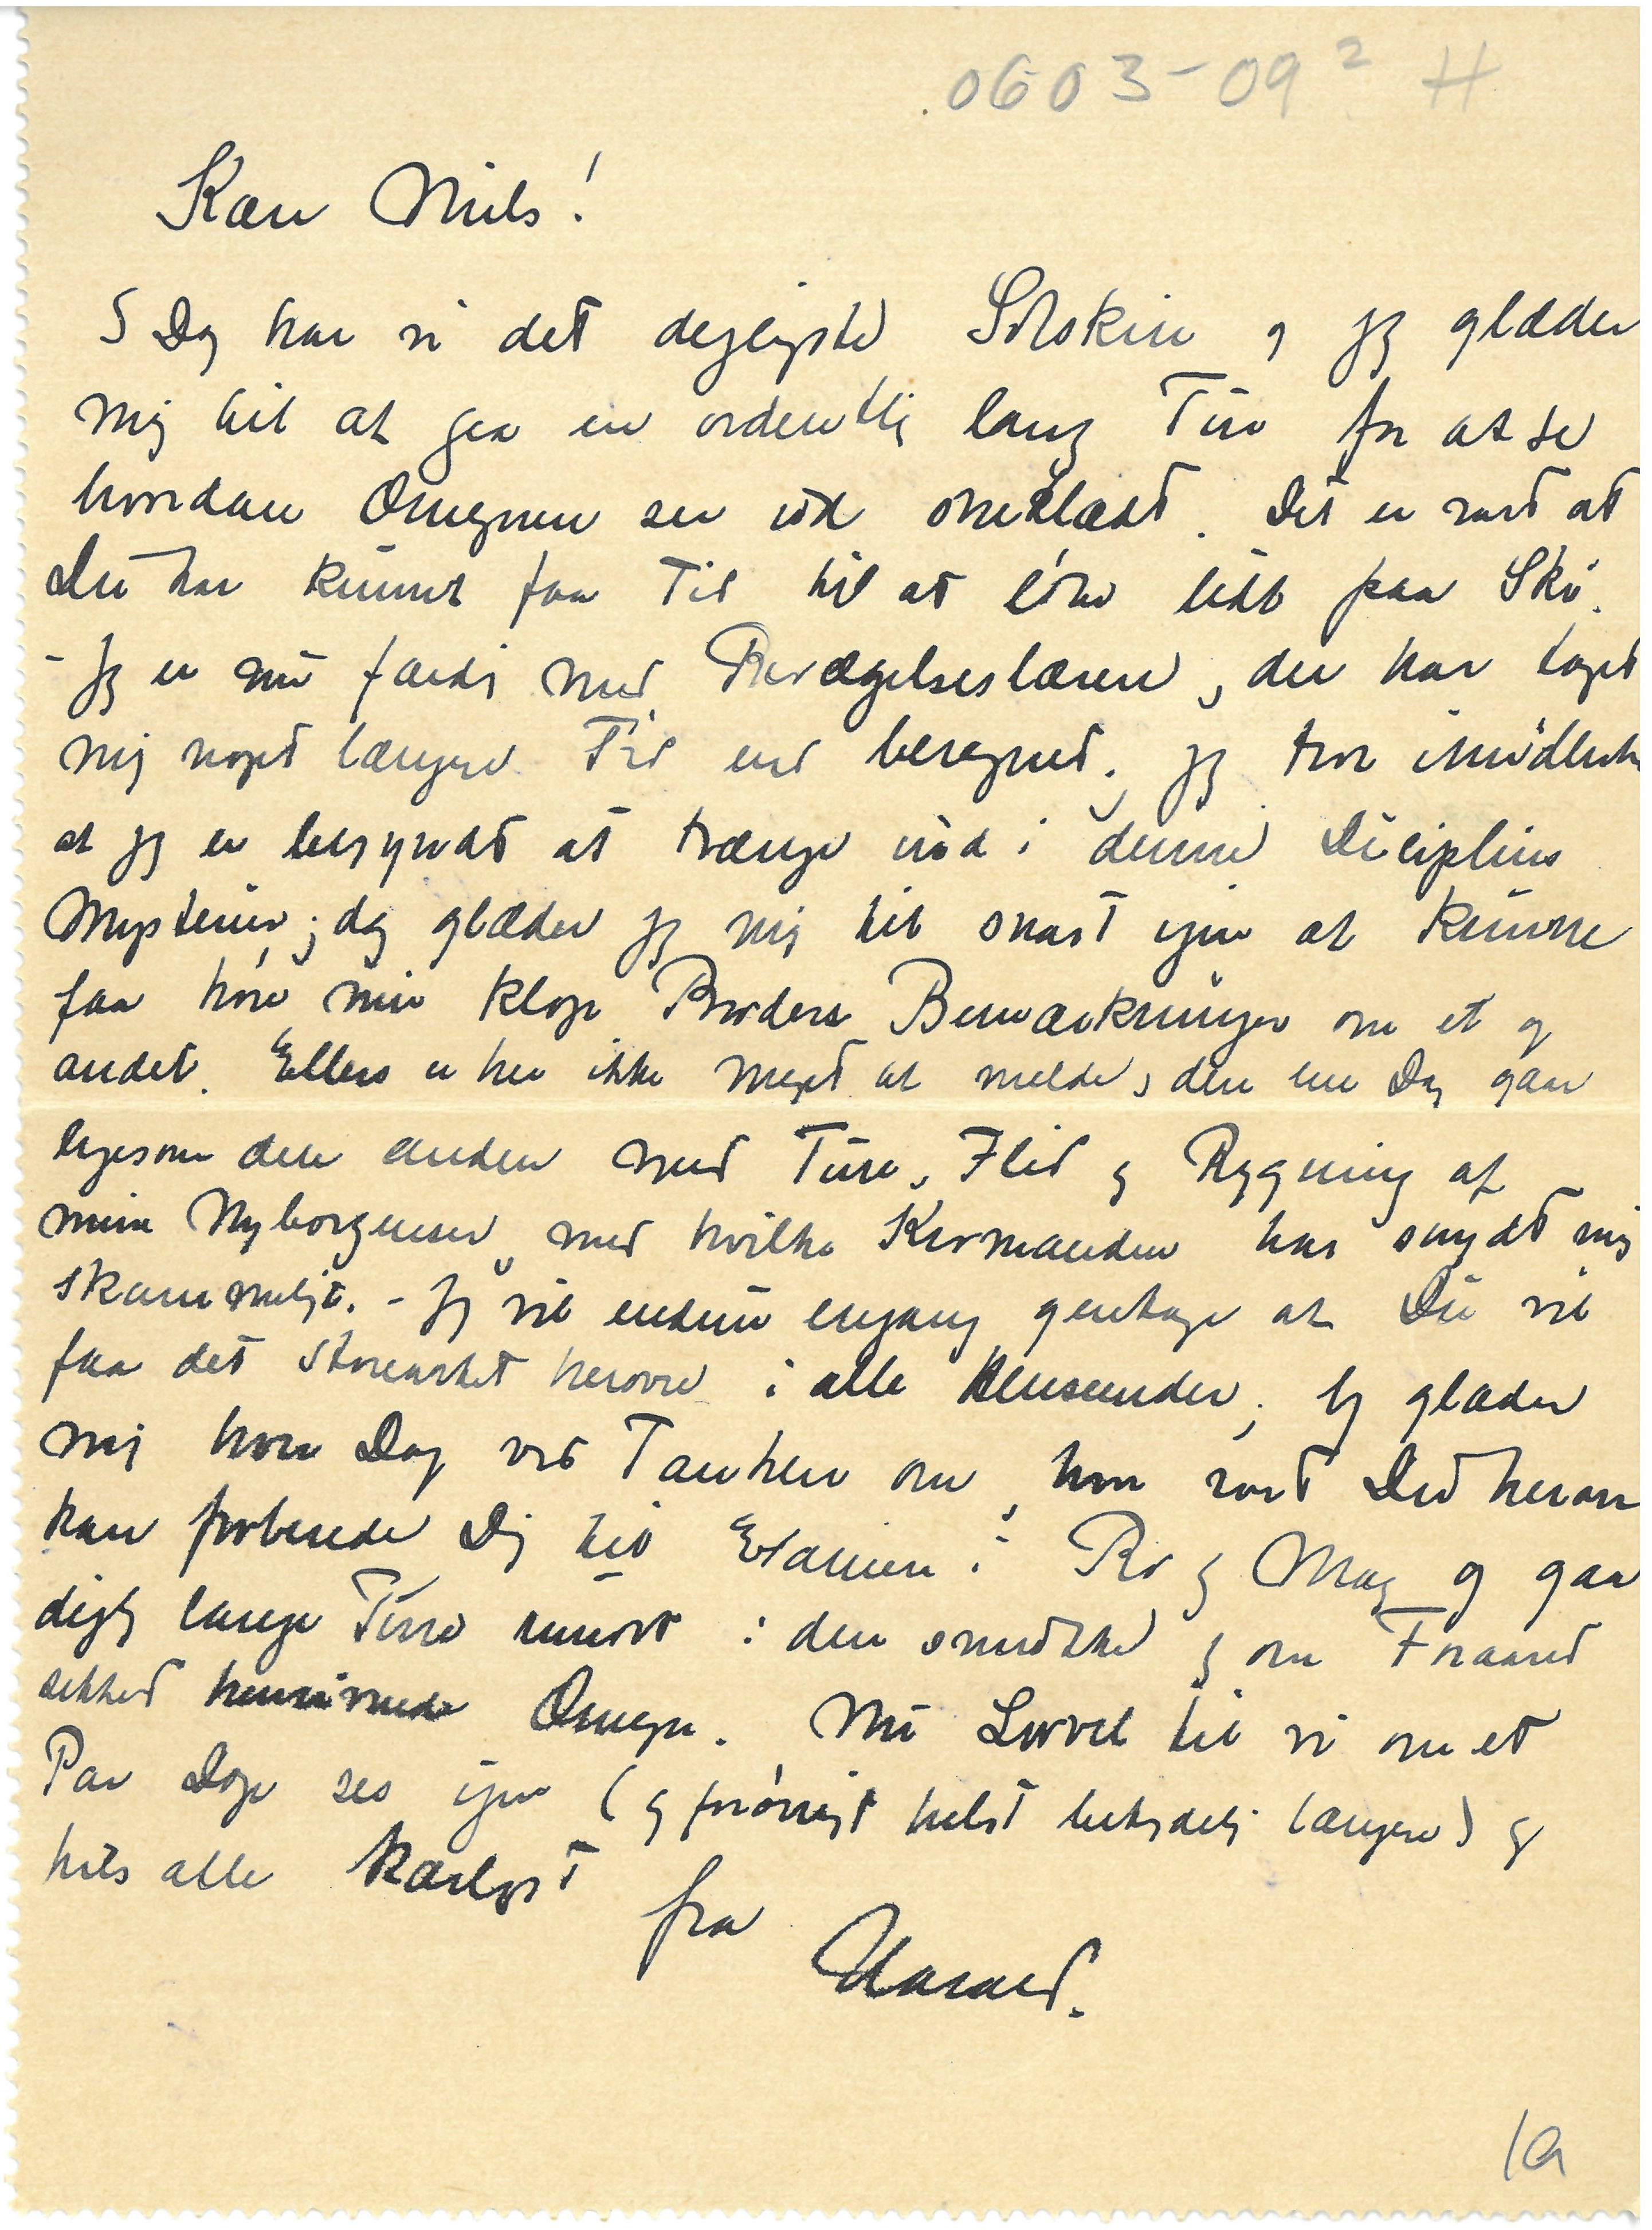 0603-09² H
Kære Niels!
I Dag har vi det dejligste Solskin og jeg glæder
mig til at gaa en ordentlig lang Tur for at se
hvordan Omegnen ser ud sneklædt. Det er rart at
Du har kunnet faa Tid til at løbe lidt paa Ski.
- Jeg er nu færdig med Bevægelseslæren, der har taget
mig noget længere Tid end beregnet. Jeg tror imidlertid
at jeg er begyndt at trænge ind i denne Diciplins
Mysterier; dog glæder jeg mig til snart igen at kunne
faa høre min kloge Broders Bemærkninger om et og
andet. Ellers er her ikke meget at melde, den ene Dag gaar
ligesom den anden med Ture, Flid og Rygning af
mine Nyborgenser, med hvilke Kromanden har snydt mig
skammeligt. - Jeg vil endnu engang gentage at Du vil
faa det storartet herovre i alle Henseender; jeg glæder
mig hver Dag ved Tanken om, hvor rart Du herovre
kan forberede Dig til Examen i Ro og Mag og gaa
dejlig lange Ture rundt i den smukke og om Foraaret
sikkert henrivende Omegn. Nu Levvel til vi om et
Par Dage ses igen (og forøvrigt helst betydelig længere) og
hils alle kærligst
fra
Harald.
1a